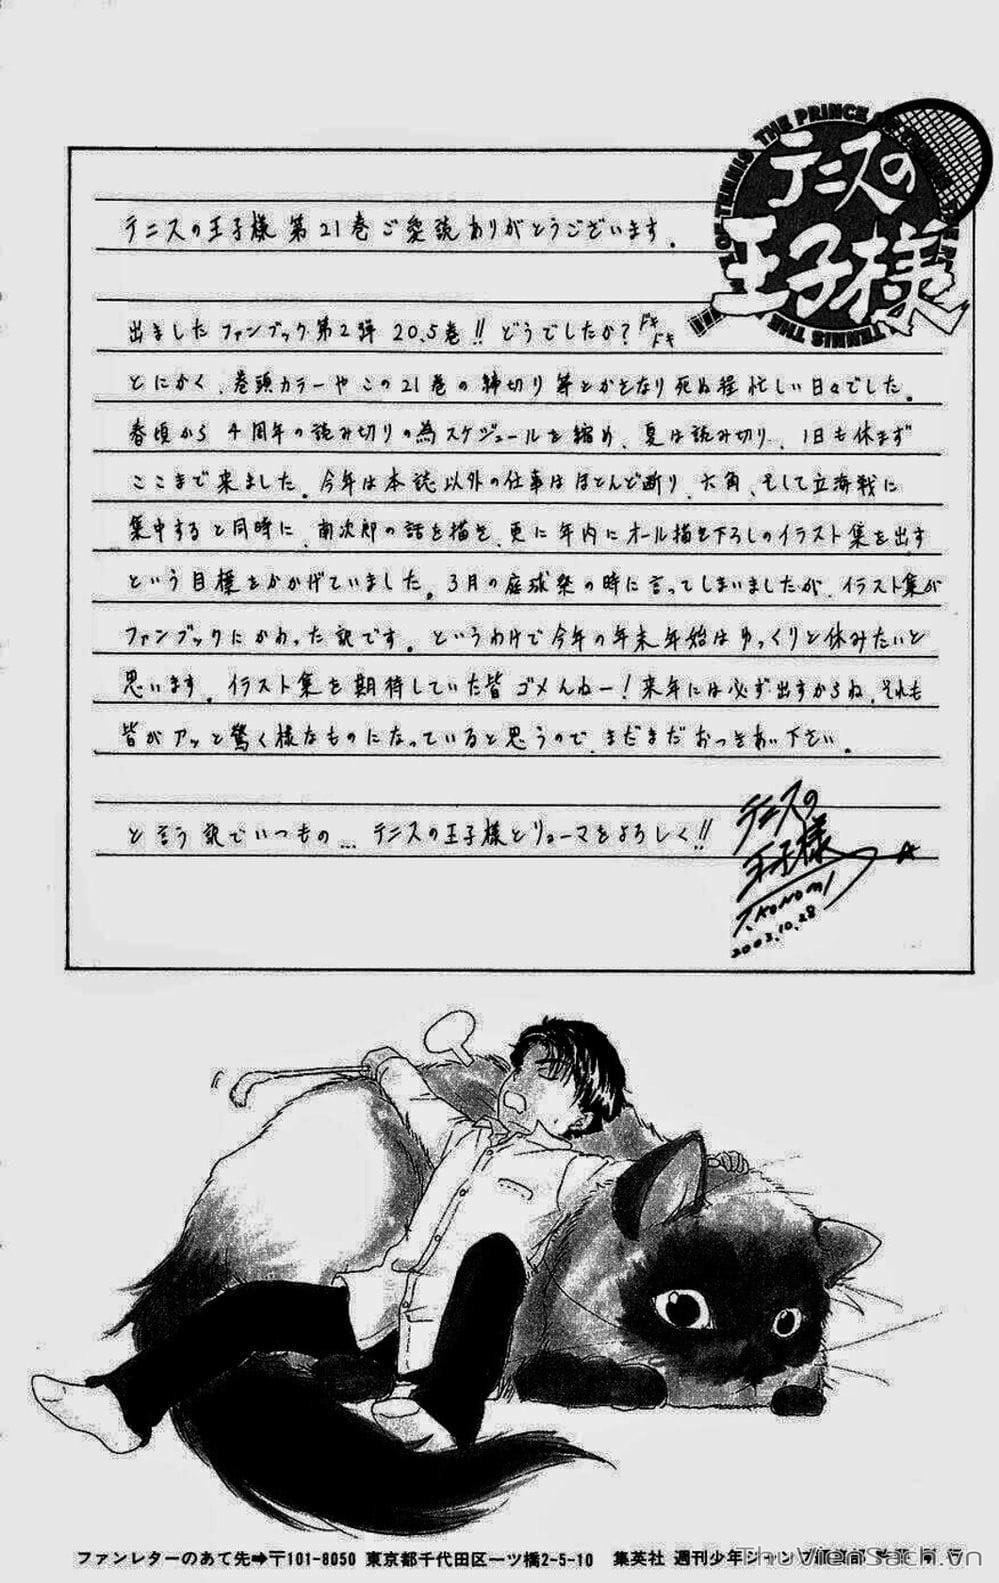 THE PRINCE OF TENNIS
テニスの
王子様
テニスの王子様 第21巻ご愛読ありがとうございます。
出ましたファンブック第2弾 20.5巻!! どうでしたか? ドキドキ
とにかく、巻頭カラーやこの21巻の締切り等とかさなり死ぬ程忙しい日々でした。
春頃から4周年の読み切りの為スケジュールを縮め、夏は読み切り、1日も休まず
ここまで来ました。今年は本誌以外の仕事はほとんど断り、六角、そして立海戦に
集中すると同時に、南次郎の話を描き、更に年内にオール描き下ろしのイラスト集を出す
という目標をかかげていました。3月の庭球祭の時に言ってしまいましたが、イラスト集が
ファンブックにかわった訳です。というわけで今年の年末年始はゆっくりと休みたいと
思います。イラスト集を期待していた皆ゴメんねー!来年には必ず出すからね。それも
皆がアッと驚く様なものになっていると思うので、まだまだおつきあい下さい。
と言う訳でいつもの…テニスの王子様とリョーマをよろしく!!
テニスの
王子様
T.KONOMI
2003.10.28
ファンレターのあて先➡〒101-8050 東京都千代田区一ツ橋2-5-10 集英社 週刊少年ジャンプ編集部
ThuVienSach.vn